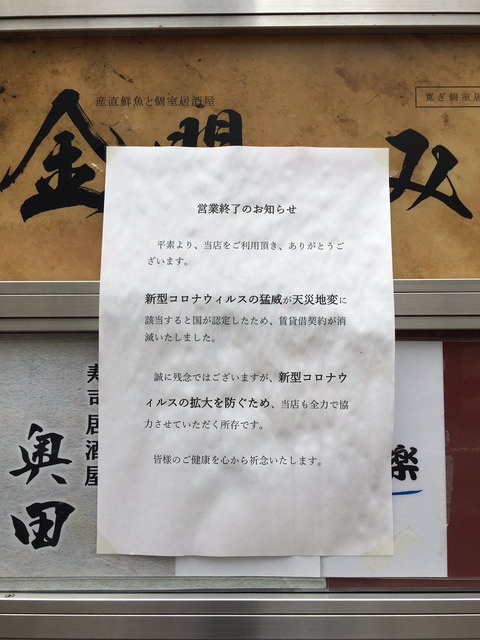 産直鮮魚と個室居酒屋
寛ぎ個室居
金
み
営業終了のお知らせ
平素より、当店をご利用頂き、ありがとうご
ざいます。
新型コロナウィルスの猛威が天災地変に
該当すると国が認定したため、賃貸借契約が消
滅いたしました。
誠に残念ではございますが、新型コロナウ
ィルスの拡大を防ぐため、当店も全力で協
力させていただく所存です。
皆様のご健康を心から祈念いたします。
寿司居酒屋
奥田
楽